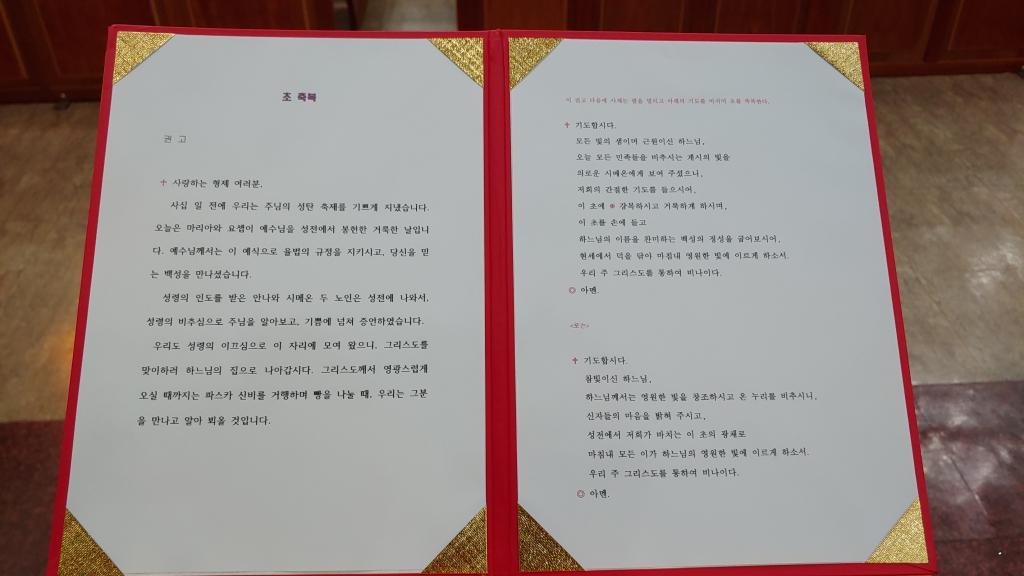 초 축복
권 고
✝ 사랑하는 형제 여러분,
사십 일 전에 우리는 주님의 성탄 축제를 기쁘게 지냈습니다.
오늘은 마리아와 요셉이 예수님을 성전에서 봉헌한 거룩한 날입니
다. 예수님께서는 이 예식으로 율법의 규정을 지키시고, 당신을 믿
는 백성을 만나셨습니다.
성령의 인도를 받은 안나와 시메온 두 노인은 성전에 나와서,
성령의 비추심으로 주님을 알아보고, 기쁨에 넘쳐 증언하였습니다.
우리도 성령의 이끄심으로 이 자리에 모여 왔으니, 그리스도를
맞이하러 하느님의 집으로 나아갑시다. 그리스도께서 영광스럽게
오실 때까지는 파스카 신비를 거행하며 빵을 나눌 때, 우리는 그분
을 만나고 알아 뵈올 것입니다.
이 권고 다음에 사제는 팔을 벌리고 아래의 기도를 바치며 초를 축복한다.
✝ 기도합시다.
모든 빛의 샘이며 근원이신 하느님,
오늘 모든 민족들을 비추시는 계시의 빛을
의로운 시메온에게 보여 주셨으니,
저희의 간절한 기도를 들으시어,
이 초에 ✠ 강복하시고 거룩하게 하시며,
이 초를 손에 들고
하느님의 이름을 찬미하는 백성의 정성을 굽어보시어,
현세에서 덕을 닦아 마침내 영원한 빛에 이르게 하소서.
우리 주 그리스도를 통하여 비나이다.
◎ 아멘.
<또는>
✝ 기도합시다.
참빛이신 하느님,
하느님께서는 영원한 빛을 창조하시고 온 누리를 비추시니,
신자들의 마음을 밝혀 주시고,
성전에서 저희가 바치는 이 초의 광채로
마침내 모든 이가 하느님의 영원한 빛에 이르게 하소서.
우리 주 그리스도를 통하여 비나이다.
◎ 아멘.